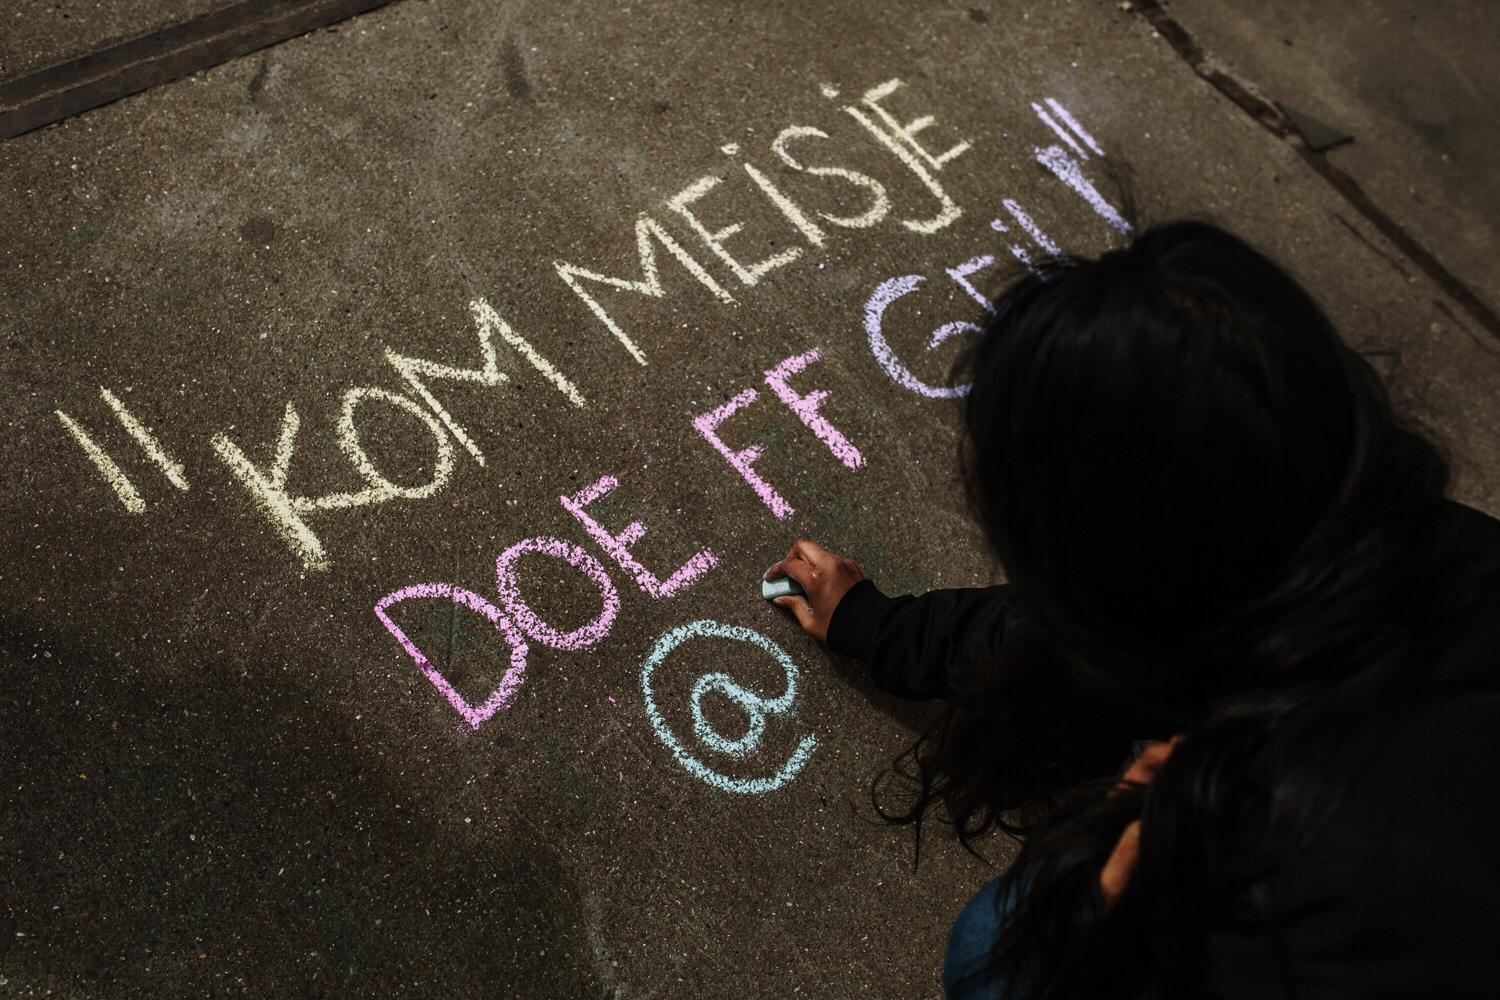 "KOM MEISJE
DOE FF GEiL"
@